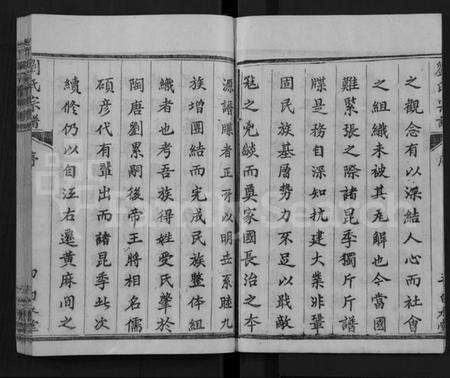 之觀念有以深結人心而社會
之組織未被其瓦解也今當國
難緊張之際諸昆季獨斤斤譜
牒是務自深知抗建大業非鞏
固民族基層勢力不足以戢敵
寇之兇燄而奠家國長治之本
源譜牒者正所以明世系睦九
族增團結而完成民族整体組
織者也考吾族得姓受氏肇於
陶唐劉累嗣後帝王將相名儒
碩彦代有輩出而諸昆季此次
續修仍以自江右遷黄麻間之
劉氏宗譜